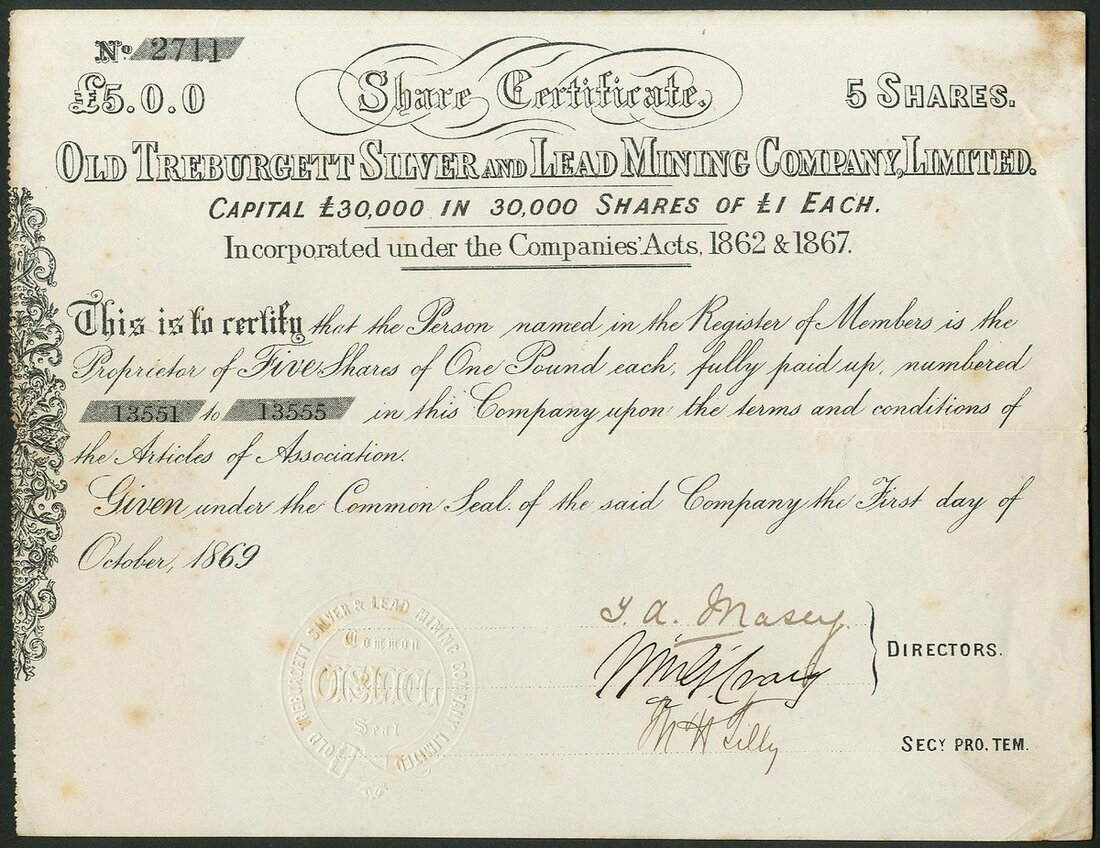 No. 2711
£5.0.0
Share Certificate.
5 SHARES.
OLD TREBURGETT SILVER AND LEAD MINING COMPANY, LIMITED.
CAPITAL £30,000 IN 30,000 SHARES OF £1 EACH.
Incorporated under the Companies' Acts, 1862 & 1867.
This is to certify that the Person named in the Register of Members is the
Proprietor of Five Shares of One Pound each, fully paid up, numbered
13551 to 13555 in this Company upon the terms and conditions of
the Articles of Association.
Given under the Common Seal of the said Company the First day of
October, 1869
OLD TREBURGETT SILVER & LEAD MINING COMPANY LIMITED
Common
Seal
T. A. Masey.
Wm G. Craig
DIRECTORS.
H Tilly
SECY PRO. TEM.